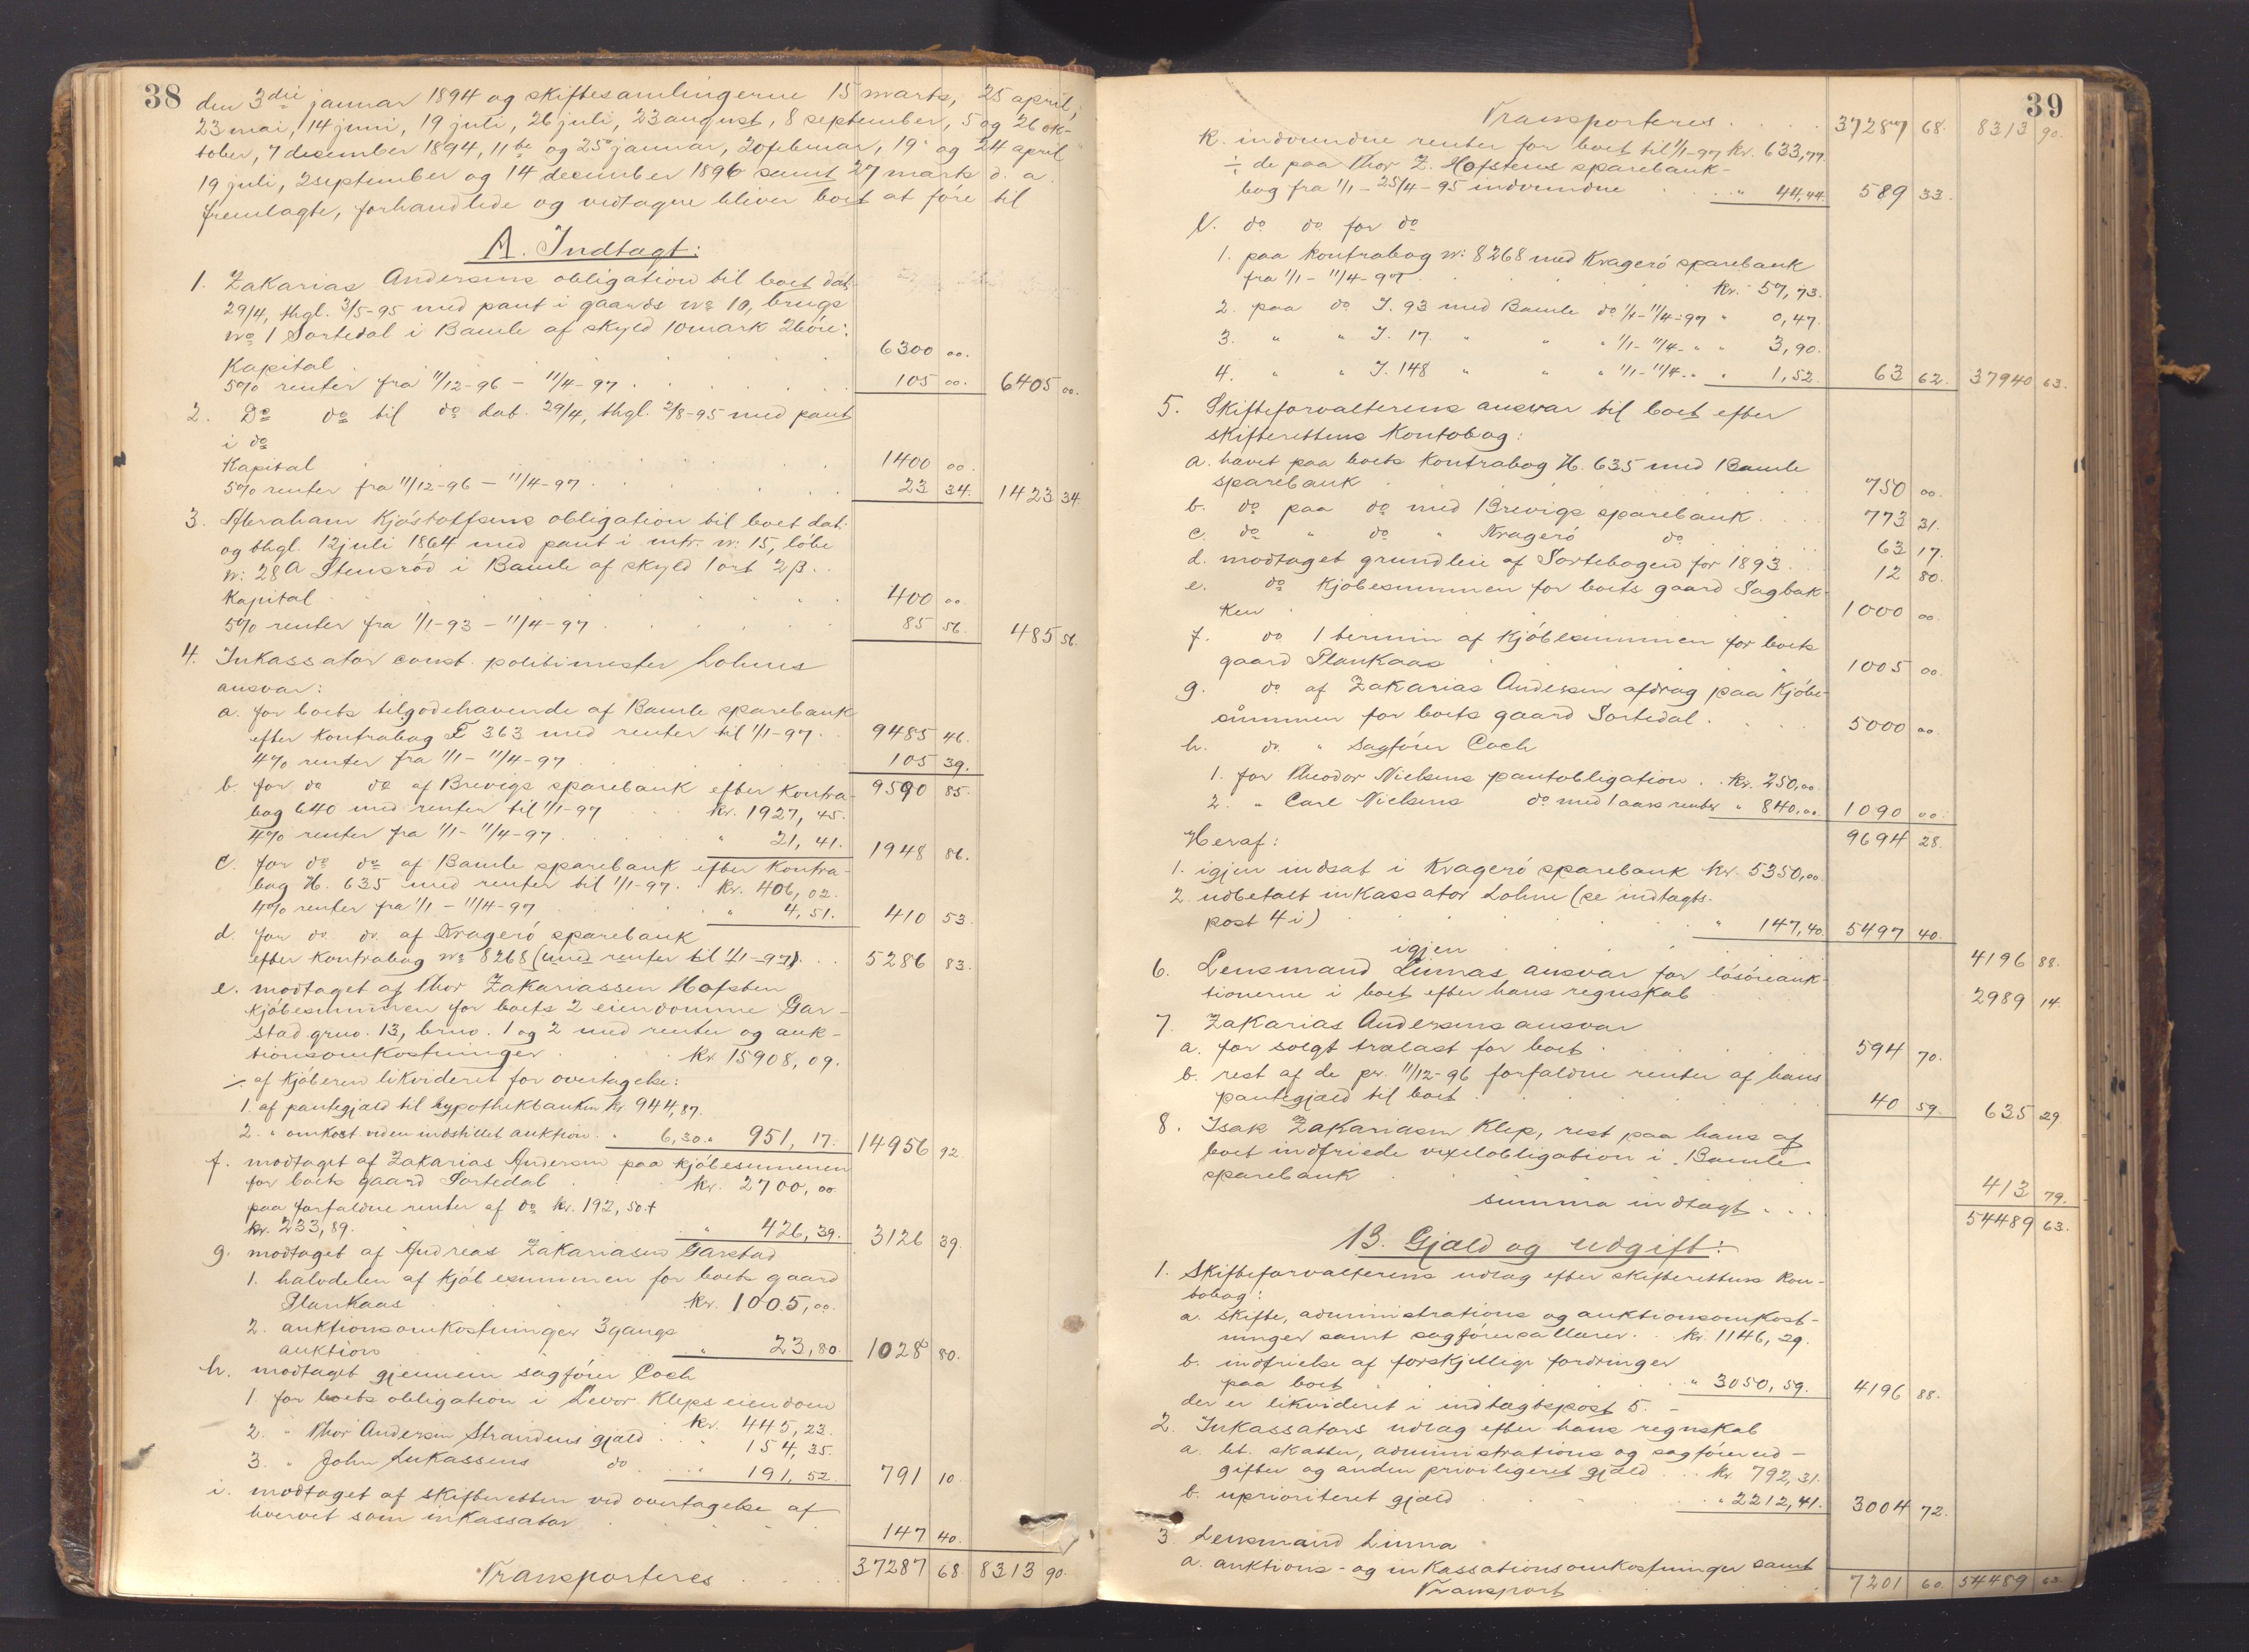 38
den 3die januar 1894 og skiftesamlingerne 15 marts, 25 april,
23 mai, 14 juni, 19 juli, 26 juli, 23 august, 8 september, 5 og 26 ok-
tober, 7 december 1894, 11te og 25 januar, 20 februar, 19 og 24 april
19 juli, 2 september og 14 december 1896 samt 27 marts d. a.
fremlagte, forhandlede og vedtagne bliver boet at føre til
A. Indtægt:
1. Zakarias Andersens obligation til boet dat.
29/4, thgl. 3/5-95 med pant i gaards No 10, brugs
No 1 Sortedal i Bamle af skyld 10 mark 26 øre:
Kapital . . . 6300 00.
5% renter fra 11/12-96 - 11/4-97 . . . 105 00. 6405 00.
2. Do do til do dat. 29/4, thgl. 2/8-95 med pant
i do
Kapital . . . 1400 00.
5% renter fra 11/12-96 - 11/4-97 . . . 23 34. 1423 34.
3. Abraham Kjøstolfsens obligation til boet dat.
og thgl. 12 juli 1864 med pant i mtr. n: 15, løbe
n: 28a Stensrød i Bamle af skyld 1 ort 2 β. .
Kapital . . . 400 00.
5% renter fra 1/1-93 - 11/4-97 . . . 85 56. 485 56.
4. Inkassator const. politimester Lohnes
ansvar:
a. for boets tilgodehavende af Bamle sparebank
efter Kontrabog F 363 med renter til 1/1-97 . . 9485 46.
4% renter fra 1/1 - 11/4-97 . . . 105 39.
9590 85.
b. for do do af Brevigs sparebank efter Kontra-
bog 640 med renter til 1/1-97 . . . kr. 1927, 45.
4% renter fra 1/1 - 11/4-97 . . . " 21, 41. 1948 86.
c. for do do af Bamle sparebank efter Kontra-
bog H. 635 med renter til 1/1-97 . . kr. 406, 02.
4% renter fra 1/1 - 11/4-97 . . . " 4, 51. 410 53.
d. for do do af Kragerø sparebank
efter Kontrabog No 8268 (med renter til 1/1-97). . . 5286 83.
e. modtaget af Thor Zakariassen Hofsten
kjøbesummen for boets 2 eiendomme Gar-
stad grno. 13, brno. 1 og 2 med renter og auk-
tionsomkostninger . . . kr. 15908, 09.
÷ af kjøberen likvideret for overtagelse:
1. af pantegjæld til hypothekbanken kr. 944, 87.
2. " omkost. ved en indstillet auktion . " 6,30. " 951, 17. 14956 92.
f. modtaget af Zakarias Andersen paa kjøbesummen
for boets gaard Sortedal . . kr. 2700, 00.
paa forfaldne renter af do kr. 192, 50 +
kr. 233, 89. . . . " 426, 39. 3126 39.
g. modtaget af Andreas Zakariasen Garstad
1. halvdelen af kjøbesummen for boets gaard
Plankaas . . . kr. 1005, 00.
2. auktionsomkostninger 3 gangs
auktion . . . " 23, 80. 1028 80.
h. modtaget gjennem sagfører Coch
1. for boets obligation i Levor Kleps eiendom
kr. 445, 23.
2. " Thor Andersen Strandens gjæld . . " 154, 35.
3. " John Lukassens do . . . " 191, 52. 791 10.
i. modtaget af skifteretten ved overtagelse af
hvervet som inkassator . . . 147 40.
Transporteres . . . 37287 68. 8313 90.
39
Transporteres . . . 37287 68. 8313 90.
k. indvundne renter for boet til 1/1-97 kr. 633, 77.
÷ de paa Thor Z. Hofstens sparebank-
bog fra 1/1 - 25/4-95 indvundne . . . " 44, 44. 589 33.
l. do do for do
1. paa kontrabog n: 8268 med Kragerø sparebank
fra 1/1 - 11/4-97 . . . kr. 57, 73.
2. paa do J. 93 med Bamle do 1/1 - 11/4-97 " 0, 47.
3. " " J. 17. " " " 1/1 - 11/4- " " 3, 90.
4. " " J. 148 " " " 1/1 - 11/4- " " 1, 52. 63 62. 37940 63.
5. Skifteforvalterens ansvar til boet efter
skifterettens Kontobog:
a. hævet paa boets Kontrabog H. 635 med Bamle
sparebank . . . 750 00.
b. do paa do med Brevigs sparebank . . . 773 31.
c. do " do " Kragerø do . . . 63 17.
d. modtaget grundleie af Sortebogen for 1893 . . . 12 80.
e. do kjøbesummen for boets gaard Sagbak-
ken . . . 1000 00.
f. do 1 termin af kjøbesummen for boets
gaard Plankaas . . . 1005 00.
g. do af Zakarias Andersen afdrag paa kjøbe-
summen for boets gaard Sortedal . . . 5000 00.
h. do " sagfører Coch
1. for Theodor Nielsens pantobligation . . kr. 250, 00.
2. " Carl Nielsens do med 1 aars renter " 840, 00. 1090 00.
Heraf: 9694 28.
1. igjen indsat i Kragerø sparebank kr. 5350, 00.
2. udbetalt inkassator Lohne (se indtægts-
post 4 i) . . . " 147, 40. 5497 40.
igjen . . . 4196 88.
6. Lensmand Linnas ansvar for løsøreauk-
tionerne i boet efter hans regnskab 2989 14.
7. Zakarias Andersens ansvar
a. for solgt trælast for boet . . . 594 70.
b. rest af de pr. 11/12-96 forfaldne renter af hans
pantegjæld til boet . . . 40 59. 635 29.
8. Isak Zakariasen Klep, rest paa hans af
boet indfriede vexelobligation i Bamle
sparebank . . . 413 79.
summa indtægt . . . 54489 63.
B. Gjæld og udgift:
1. Skifteforvalterens udlæg efter skifterettens Kon-
tobog:
a. skifte, administrations og auktionsomkost-
ninger samt sagførersallærer . . kr. 1146, 29.
b. indfrielse af forskjellige fordringer
paa boet . . . " 3050, 59. 4196 88.
der er likvideret i indtægtspost 5. -
2. Inkassators udlæg efter hans regnskab
a. bet. skatter, administrations og sagførerud-
gifter og anden privilligeret gjæld . . . kr. 792, 31.
b. uprioriteret gjæld . . . " 2212, 41. 3004 72.
3. Lensmand Linna
a. auktions- og inkassationsomkostninger samt
Transport 7201 60. 54489 63.